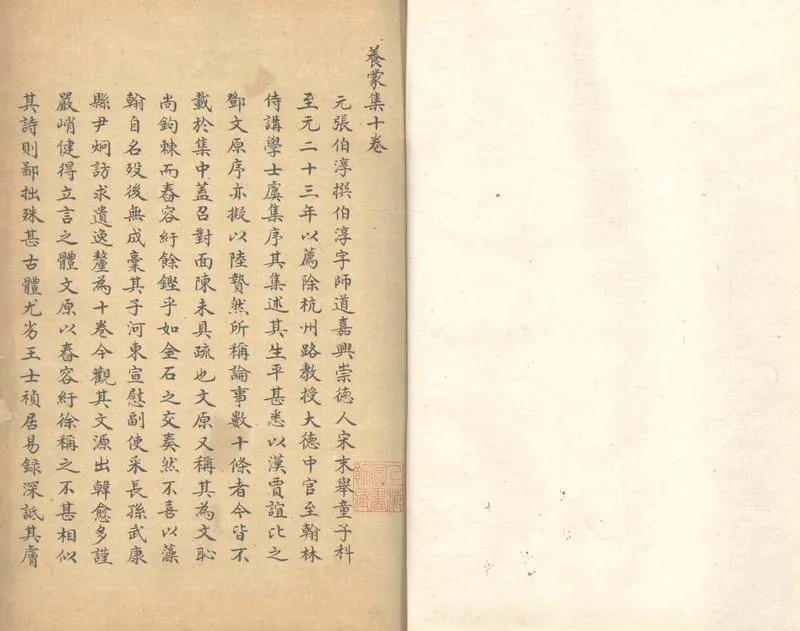 養蒙集十卷
元張伯淳撰伯淳字師道嘉興崇德人宋末舉童子科
至元二十三年以薦除杭州路教授大德中官至翰林
侍講學士虞集序其集述其生平甚悉以漢賈誼比之
鄧文原序亦擬以陸贄然所稱論事數十條者今皆不
載於集中蓋召對面陳未具疏也文原又稱其為文恥
尚鉤棘而舂容紆餘鏗乎如金石之交奏然不喜以藻
翰自名歿後無成稾其子河東宣慰副使采長孫武康
縣尹炯訪求遺逸釐為十卷今觀其文源出韓愈多謹
嚴峭健得立言之體文原以舂容紆徐稱之不甚相似
其詩則鄙拙殊甚古體尤劣王士禎居易録深詆其膚